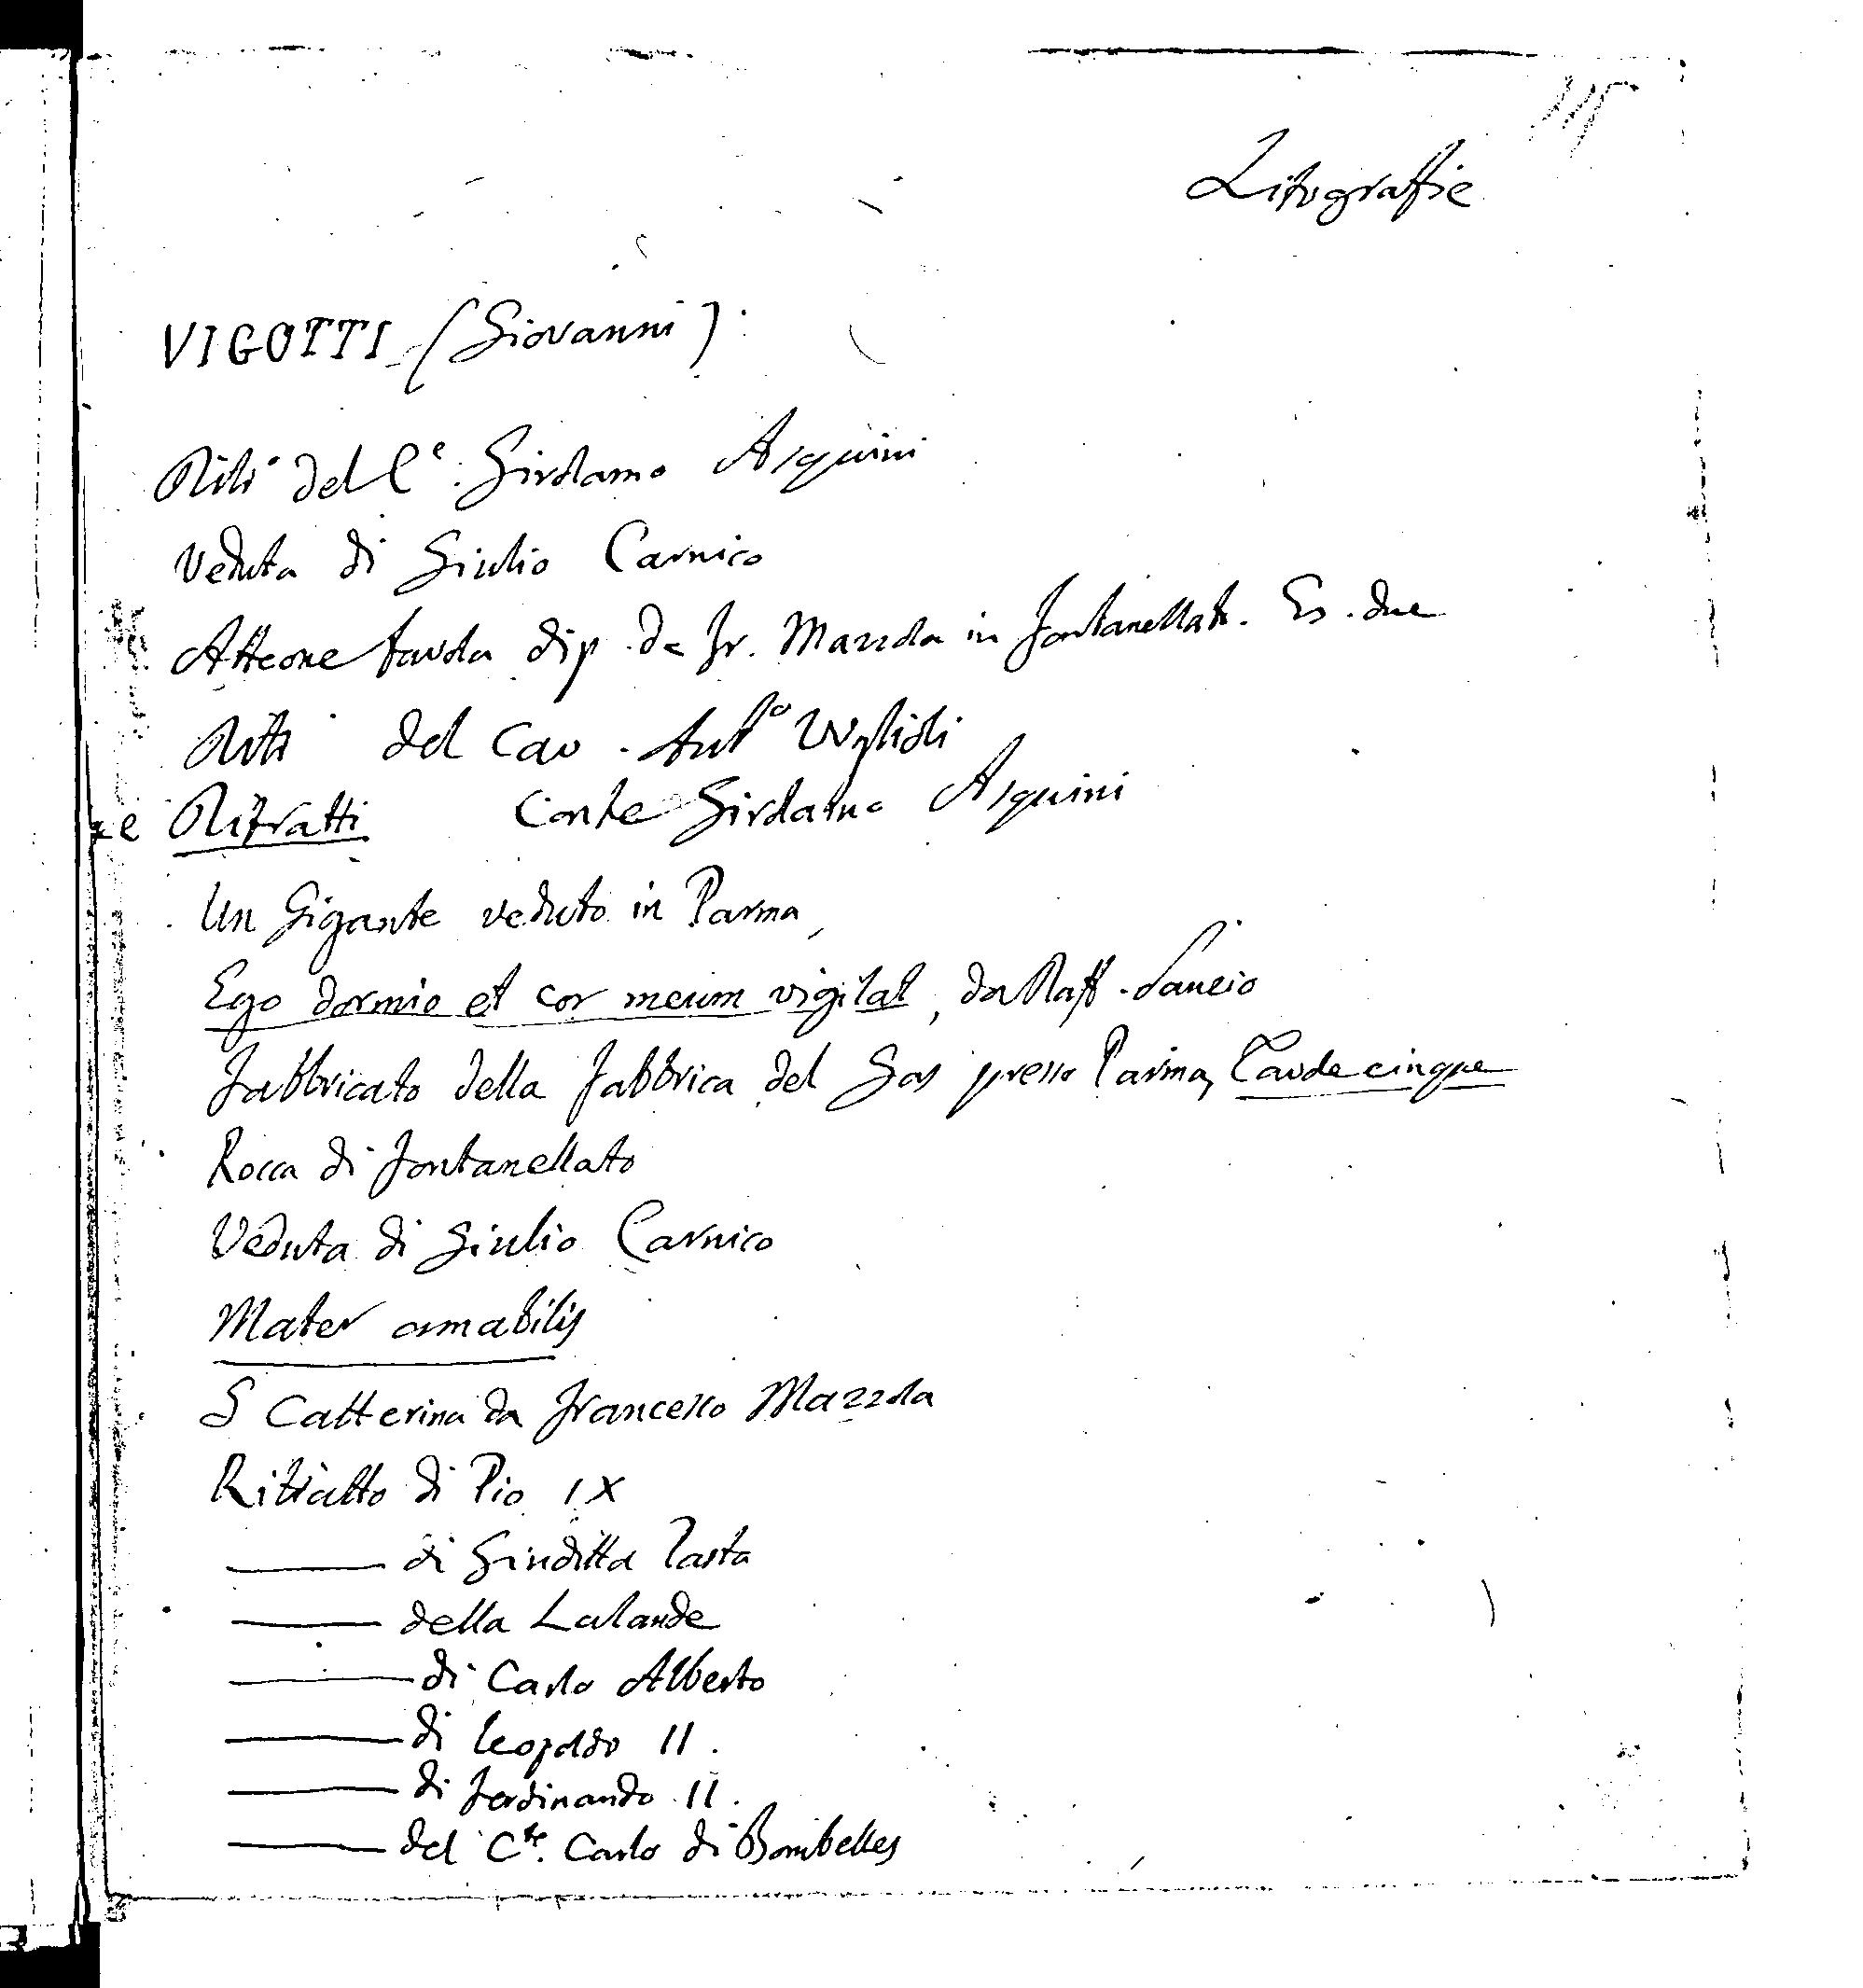 115
Litografie
VIGOTTI (Giovanni)
Riti del Ce. Girolamo Asquini
Veduta di Giulio Carnico
Atteone tavola dip. da Fr. Mazzola in Fontanellato. Es. due
del Cav. Anto
Ritratti Conte Girolamo Asquini
Un Gigante veduto in Parma,
Ego dormio et cor meum vigilat, da Raff. Sancio
Fabbricato della fabbrica del Gas presso Parma, Tavole cinque
Rocca di Fontanellato
Veduta di Giulio Carnico
Mater amabilis
S Catterina da Francesco Mazzola
Ritratto di Pio IX
——— di Giuditta Pasta
——— della Lalande
——— di Carlo Alberto
——— di Leopoldo II.
——— di Ferdinando II.
——— del Cte. Carlo di Bombelles